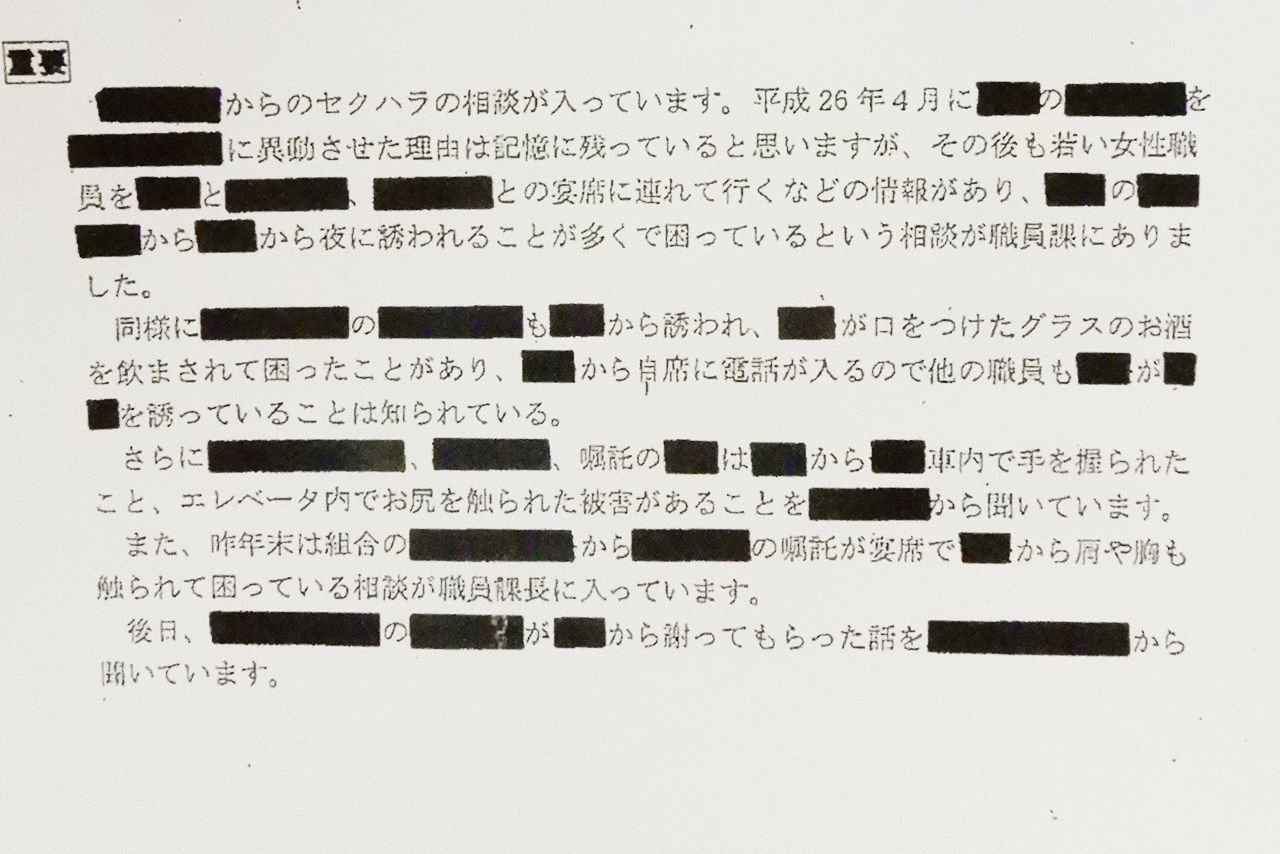 重要
からのセクハラの相談が入っています。平成26年4月にのを
に異動させた理由は記憶に残っていると思いますが、その後も若い女性職
員をと、との宴席に連れて行くなどの情報があり、の
からから夜に誘われることが多くて困っているという相談が職員課にありま
した。
同様にのもから誘われ、が口をつけたグラスのお酒
を飲まされて困ったことがあり、から自席に電話が入るので他の職員もが
を誘っていることは知られている。
さらに、、嘱託のはから車内で手を握られた
こと、エレベータ内でお尻を触られた被害があることをから聞いています。
また、昨年末は組合のからの嘱託が宴席でから肩や胸も
触られて困っている相談が職員課長に入っています。
後日、のがから謝ってもらった話をから
聞いています。